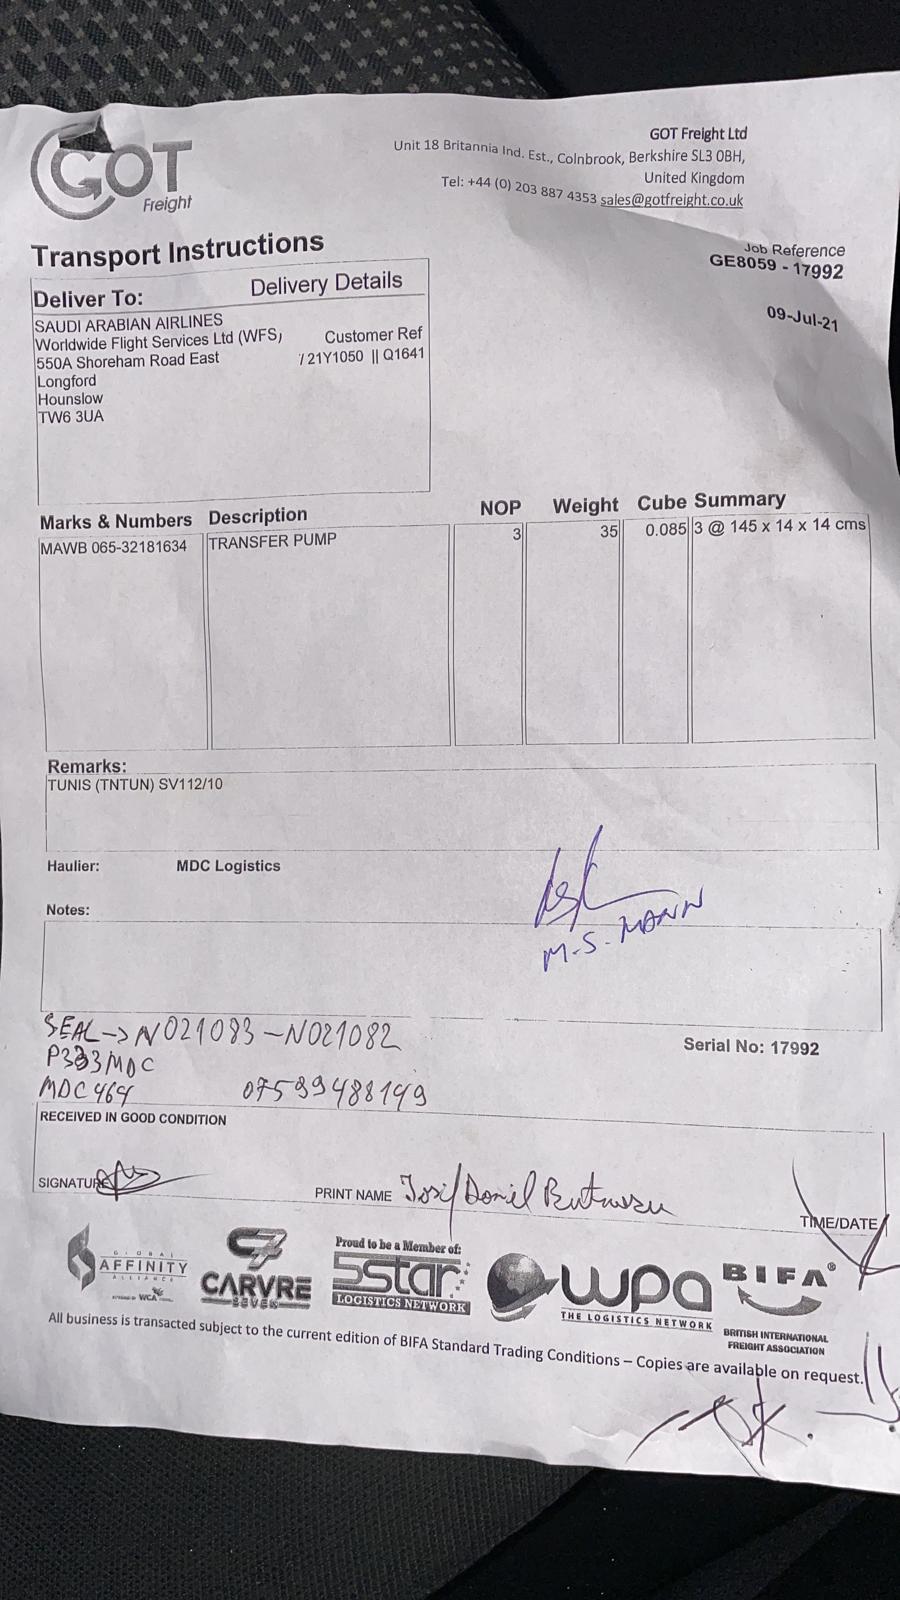 GOT
Freight
GOT Freight Ltd
Unit 18 Britannia Ind. Est., Colnbrook, Berkshire SL3 0BH,
United Kingdom
Tel: +44 (0) 203 887 4353 sales@gotfreight.co.uk
Transport Instructions
Job Reference
GE8059 - 17992
09-Jul-21
Deliver To: Delivery Details
SAUDI ARABIAN AIRLINES
Worldwide Flight Services Ltd (WFS) Customer Ref
550A Shoreham Road East / 21Y1050 || Q1641
Longford
Hounslow
TW6 3UA
Marks & Numbers Description NOP Weight Cube Summary
MAWB 065-32181634 TRANSFER PUMP 3 35 0.085 3 @ 145 x 14 x 14 cms
Remarks:
TUNIS (TNTUN) SV112/10
Haulier: MDC Logistics
Notes:
M.S. MANN
SEAL->N021083-N021082
P333MDC
MDC464 07599488149
Serial No: 17992
RECEIVED IN GOOD CONDITION
SIGNATURE
PRINT NAME Iosif Daniel
TIME/DATE
GLOBAL
AFFINITY
ALLIANCE
WCA
CARVRE
SEVEN
Proud to be a Member of:
5star
LOGISTICS NETWORK
wpa
THE LOGISTICS NETWORK
BIFA®
BRITISH INTERNATIONAL
FREIGHT ASSOCIATION
All business is transacted subject to the current edition of BIFA Standard Trading Conditions – Copies are available on request.